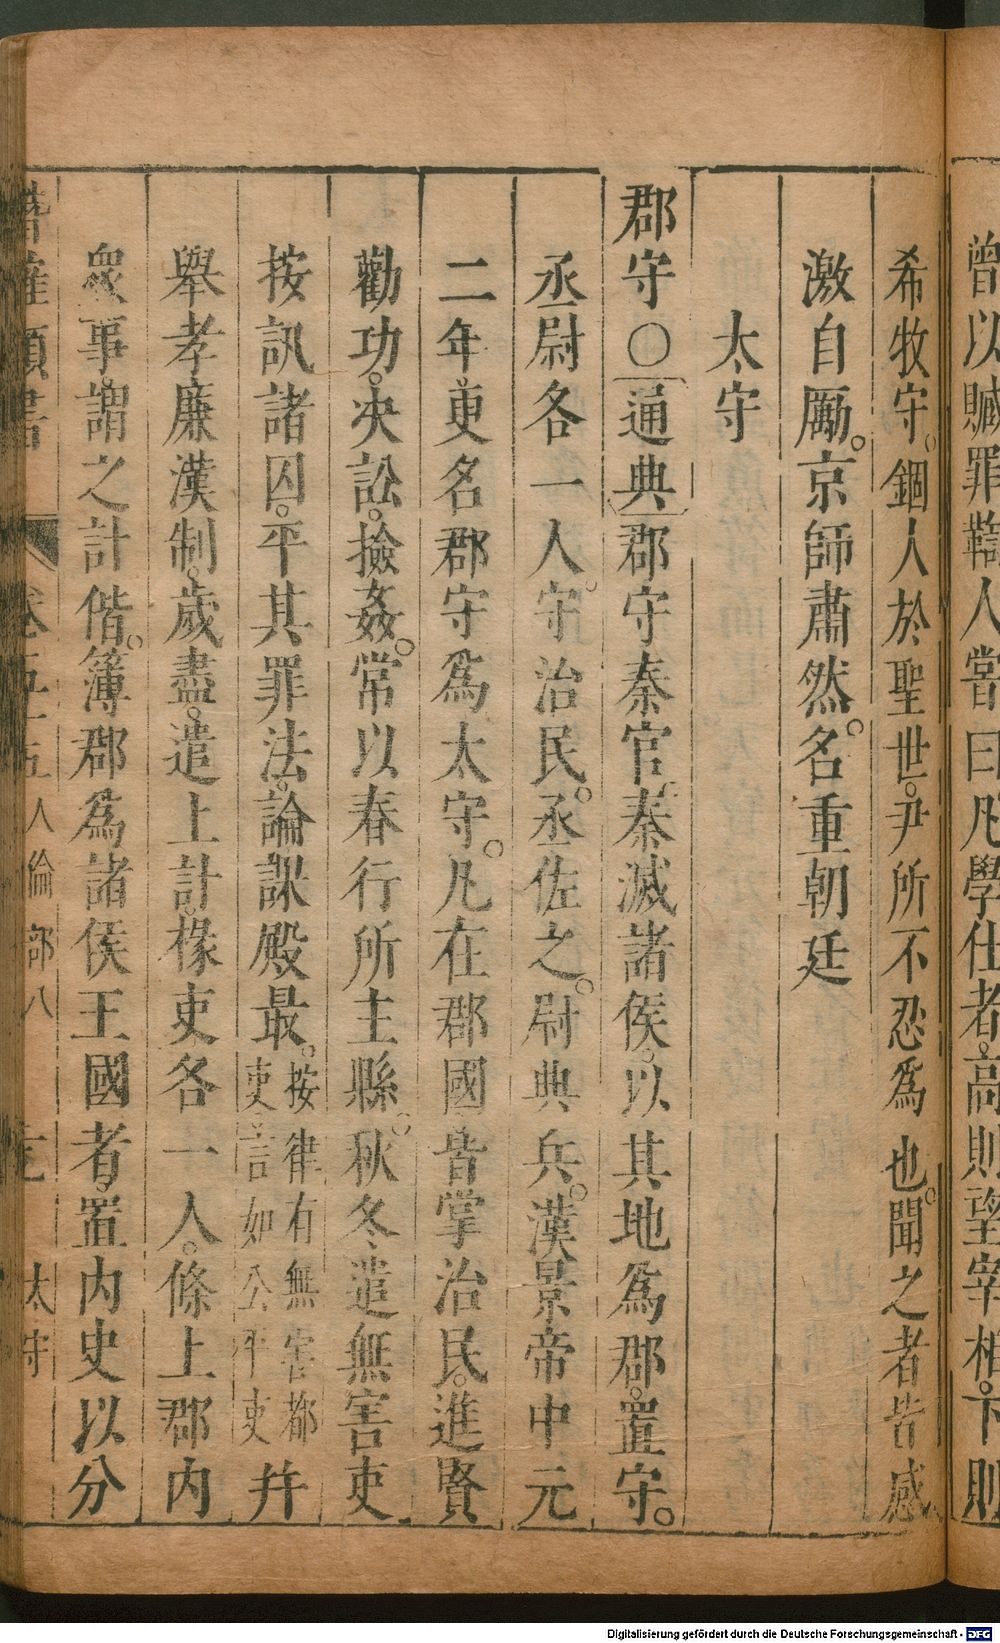 曾以贓罪鞫人嘗曰凡學仕者高則望宰相下則
希牧守錮人於聖世尹所不忍爲也聞之者皆感
激自厲京師肅然名重朝廷
太守
郡守○通典郡守秦官秦滅諸侯以其地爲郡置守
丞尉各一人守治民丞佐之尉典兵漢景帝中元
二年更名郡守爲太守凡在郡國皆掌治民進賢
勸功决訟撿姦常以春行所主縣秋冬遣無害吏
按訊諸囚平其罪法論課殿最按律有無害都吏言如公平吏幷
舉孝廉漢制歲盡遣上計掾吏各一人條上郡內
衆事謂之計偕簿郡爲諸侯王國者置內史以分
卷五十五 人倫部八 太守
Digitalisierung gefördert durch die Deutsche Forschungsgemeinschaft - DFG